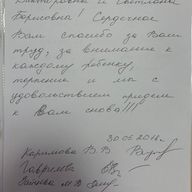 Викторовна и Светлана
Борисовна! Сердечное
Вам спасибо за Ваш
труд, за внимание к
каждому ребенку,
терпение и мы с
удовольствием придем
к Вам снова!!!
30.05.2018г.
Каримова В.В
Гаврилева
М.В